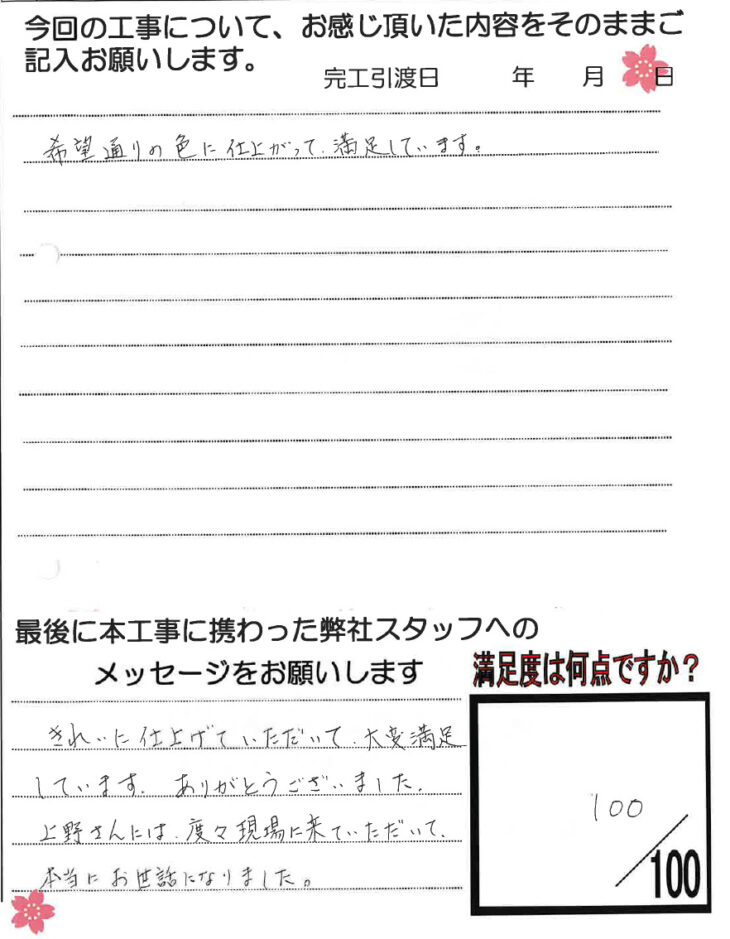 今回の工事について、お感じ頂いた内容をそのままご
記入お願いします。
完工引渡日 年 月 日
希望通りの色に仕上がって、満足しています。
最後に本工事に携わった弊社スタッフへの
メッセージをお願いします
満足度は何点ですか？
きれいに仕上げていただいて、大変満足
しています。ありがとうございました。
上野さんには、度々現場に来ていただいて、
本当にお世話になりました。
100
/100